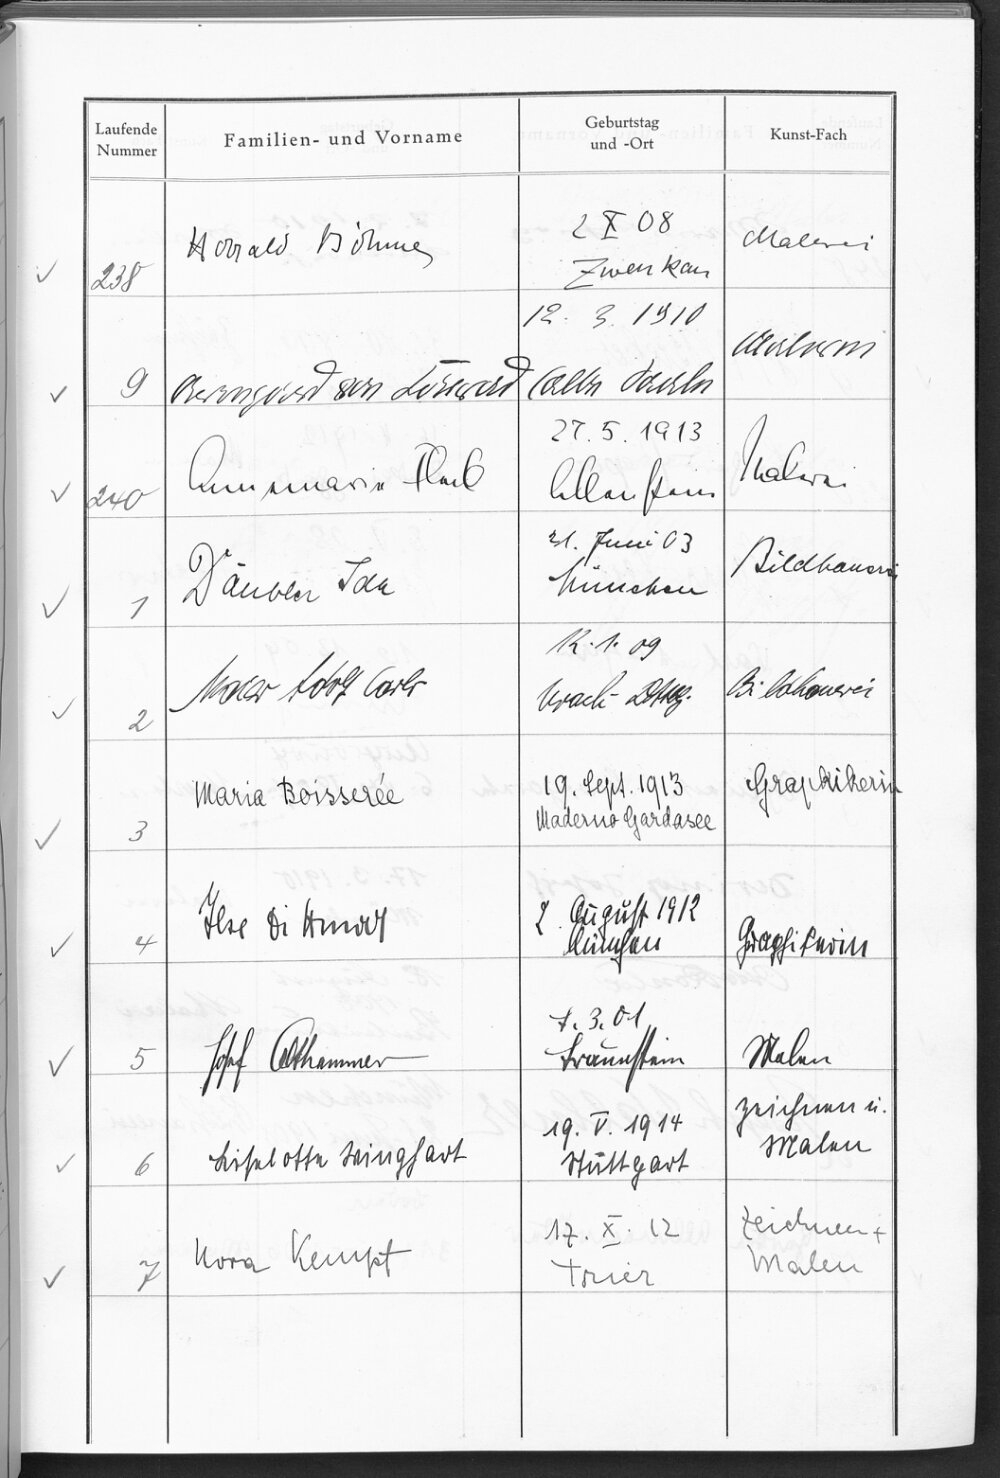 Laufende Nummer
Familien- und Vorname
Geburtstag und -Ort
Kunst-Fach
238
Harald Böhme
2 X 08
Zwenkau
Malerei
9
von
12. 3. 1910
Malerei
240
Annemarie
27. 5. 1913
Allenstein
Malerei
1
Däubler Ida
21. Juni 03
München
Bildhauerei
2
Maier Adolf Carlo
12. 1. 09
Urach
Bildhauerei
3
Maria Boisserée
19. Sept. 1913
Maderno Gardasee
Graphikerin
4
Ilse Di
2. August 1912
München
Graphikerin
5
Josef Althammer
1. 3. 01
Traunstein
Malen
6
Liselotte Winghart
19. V. 1914
Stuttgart
Zeichnen u.
Malen
7
Nora Kempf
17. X. 12
Trier
Zeichnen +
Malen